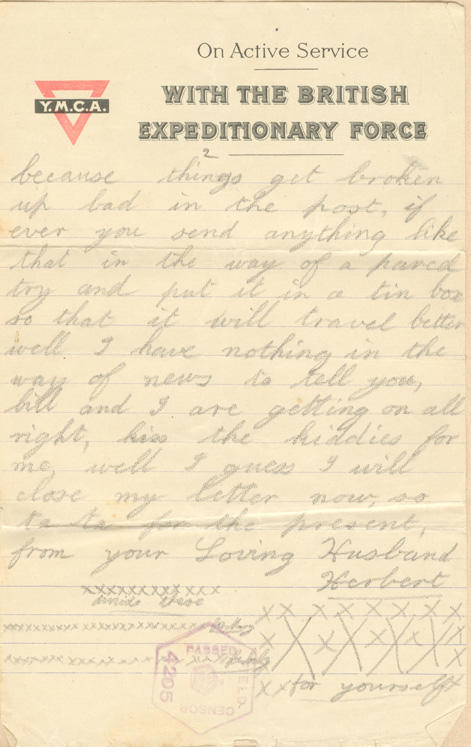 On Active Service
Y.M.C.A.
WITH THE BRITISH
EXPEDITIONARY FORCE
2
because things get broken
up bad in the post, if
ever you send anything like
that in the way of a parcel
try and put it in a tin box
so that it will travel better
well I have nothing in the
way of news to tell you,
bill and I are getting on all
right, kiss the kiddies for
me, well I guess I will
close my letter now, so
ta ta for the present,
from your Loving Husband
Herbert
xxxxxxxxxxx
divide these
xxxxxxxxxxxxxxxxxxxxx
xxxxxxxxxxxxxxxxxx
XX for yourself
PASSED
FIELD
CENSOR
4205